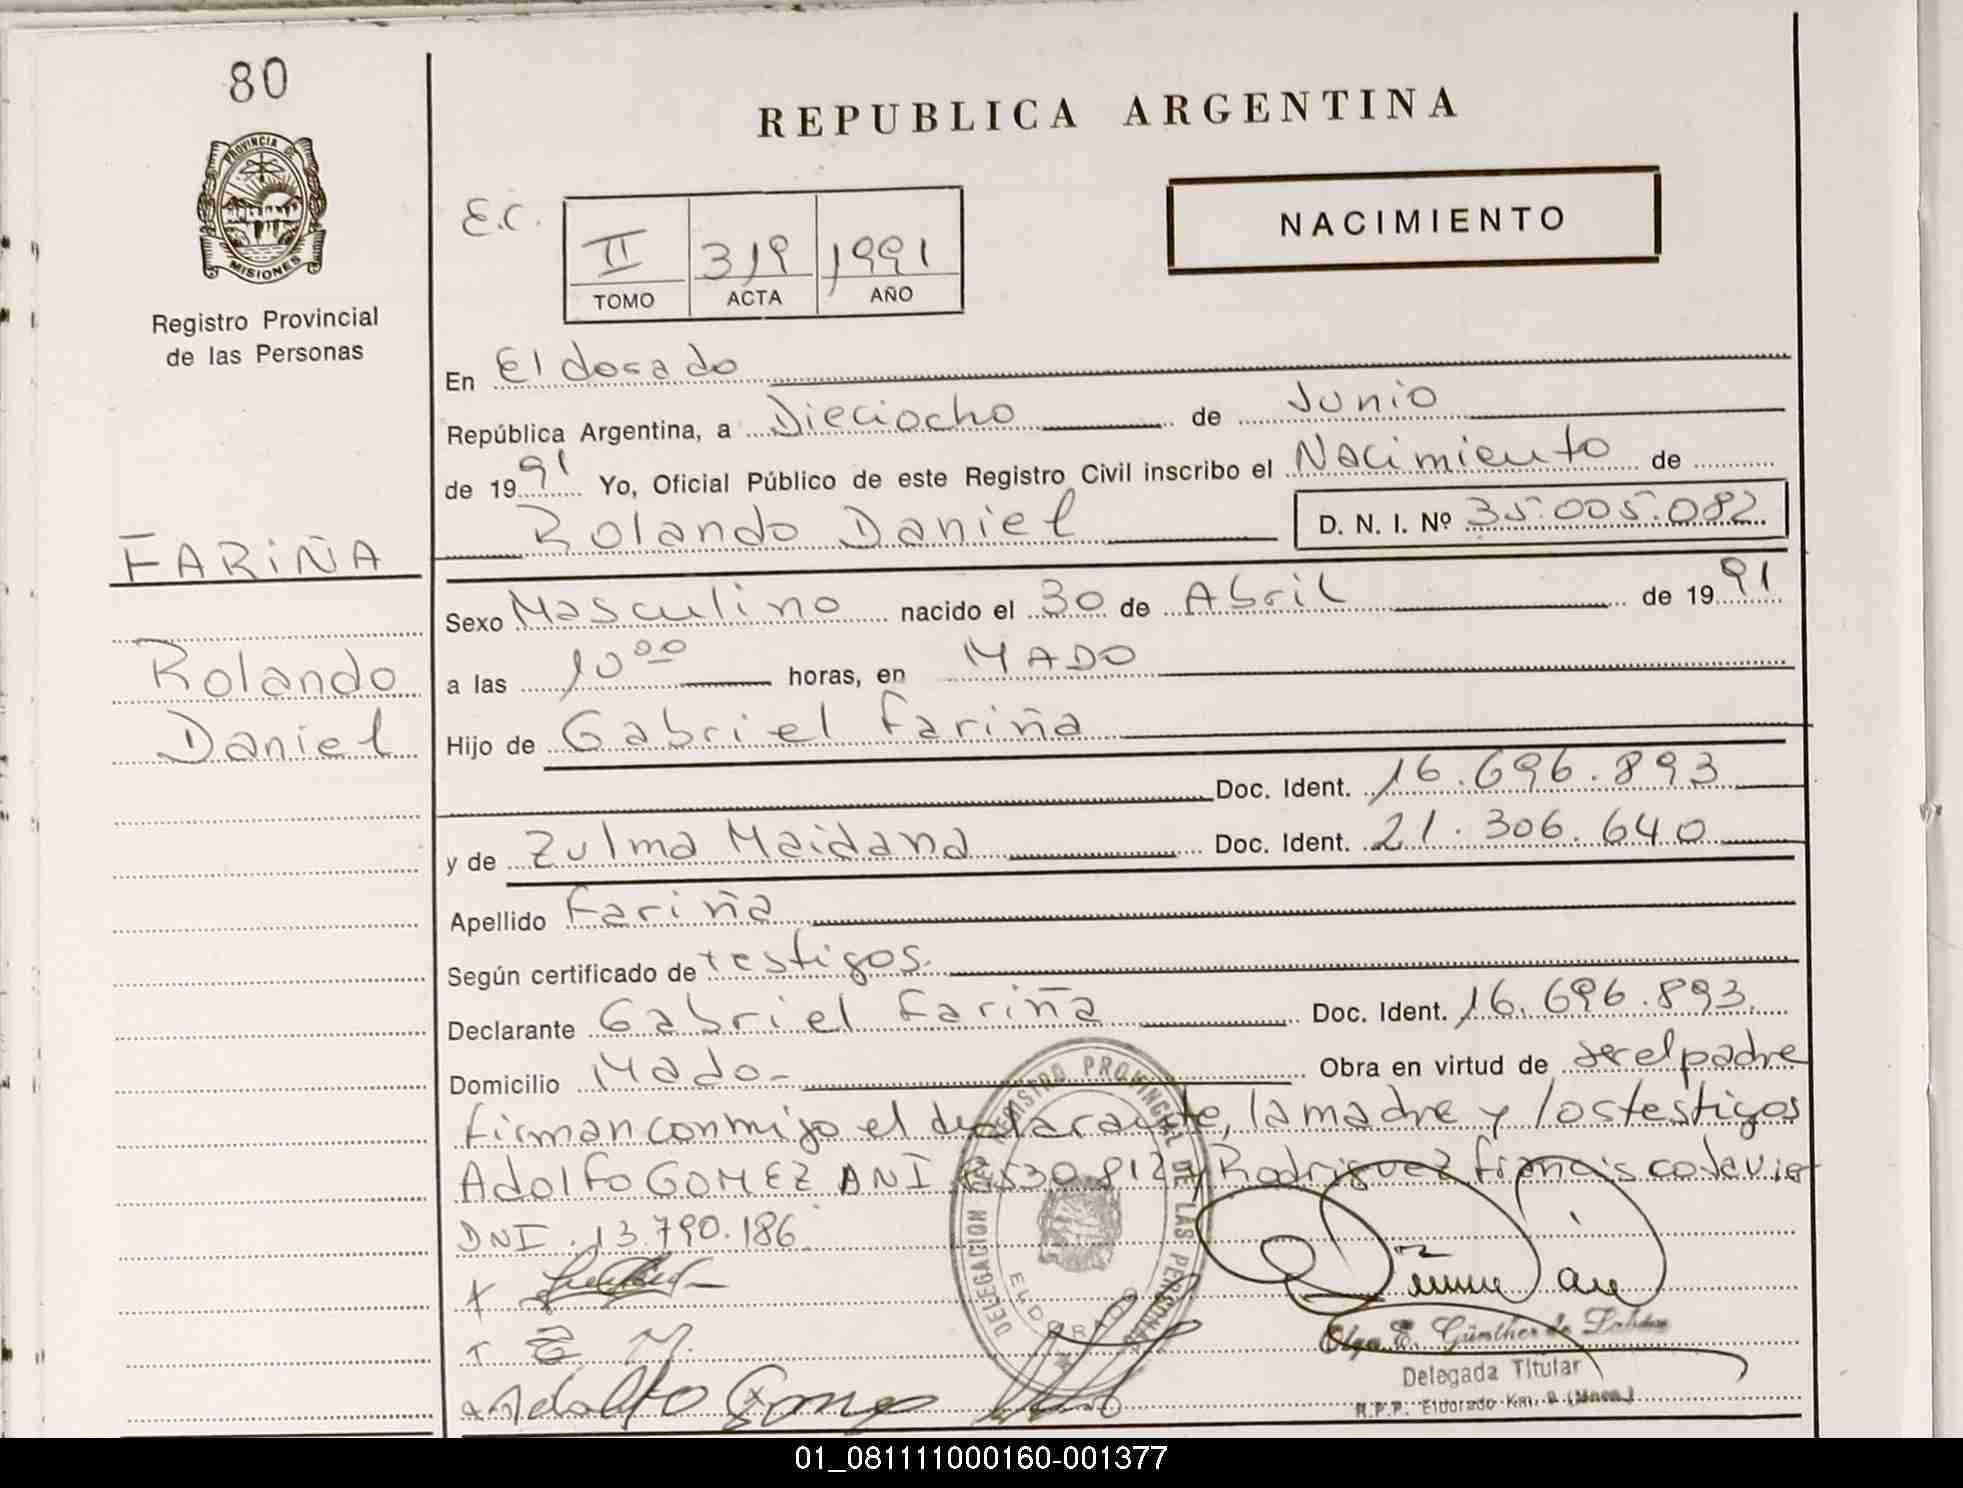 80
PROVINCIA DE
MISIONES
Registro Provincial
de las Personas
FARIÑA
Rolando
Daniel
REPUBLICA ARGENTINA
NACIMIENTO
E.C.
II 319 1991
TOMO ACTA AÑO
En Eldorado
República Argentina, a Dieciocho de Junio
de 1991 Yo, Oficial Público de este Registro Civil inscribo el Nacimiento de
Rolando Daniel D. N. I. Nº 35.005.082
Sexo Masculino nacido el 30 de Abril de 1991
a las 10 00 horas, en MADO
Hijo de Gabriel Fariña
Doc. Ident. 16.696.893
y de Zulma Maidana Doc. Ident. 21.306.640
Apellido Fariña
Según certificado de testigos.
Declarante Gabriel Fariña Doc. Ident. 16.696.893.
Domicilio Mado- Obra en virtud de ser el padre
firman conmigo el declarante, la madre y los testigos
Adolfo GOMEZ DNI 530812 y Rodriguez Francisco Javier
DNI. 13.790.186.
Z M.
Adolfo Gomez
DELEGACION DEL REGISTRO PROVINCIAL DE LAS PERSONAS
ELDORADO
Olga E. Günther de
Delegada Titular
R.P.P. Eldorado Km. 9 (Mnes.)
01_081111000160-001377